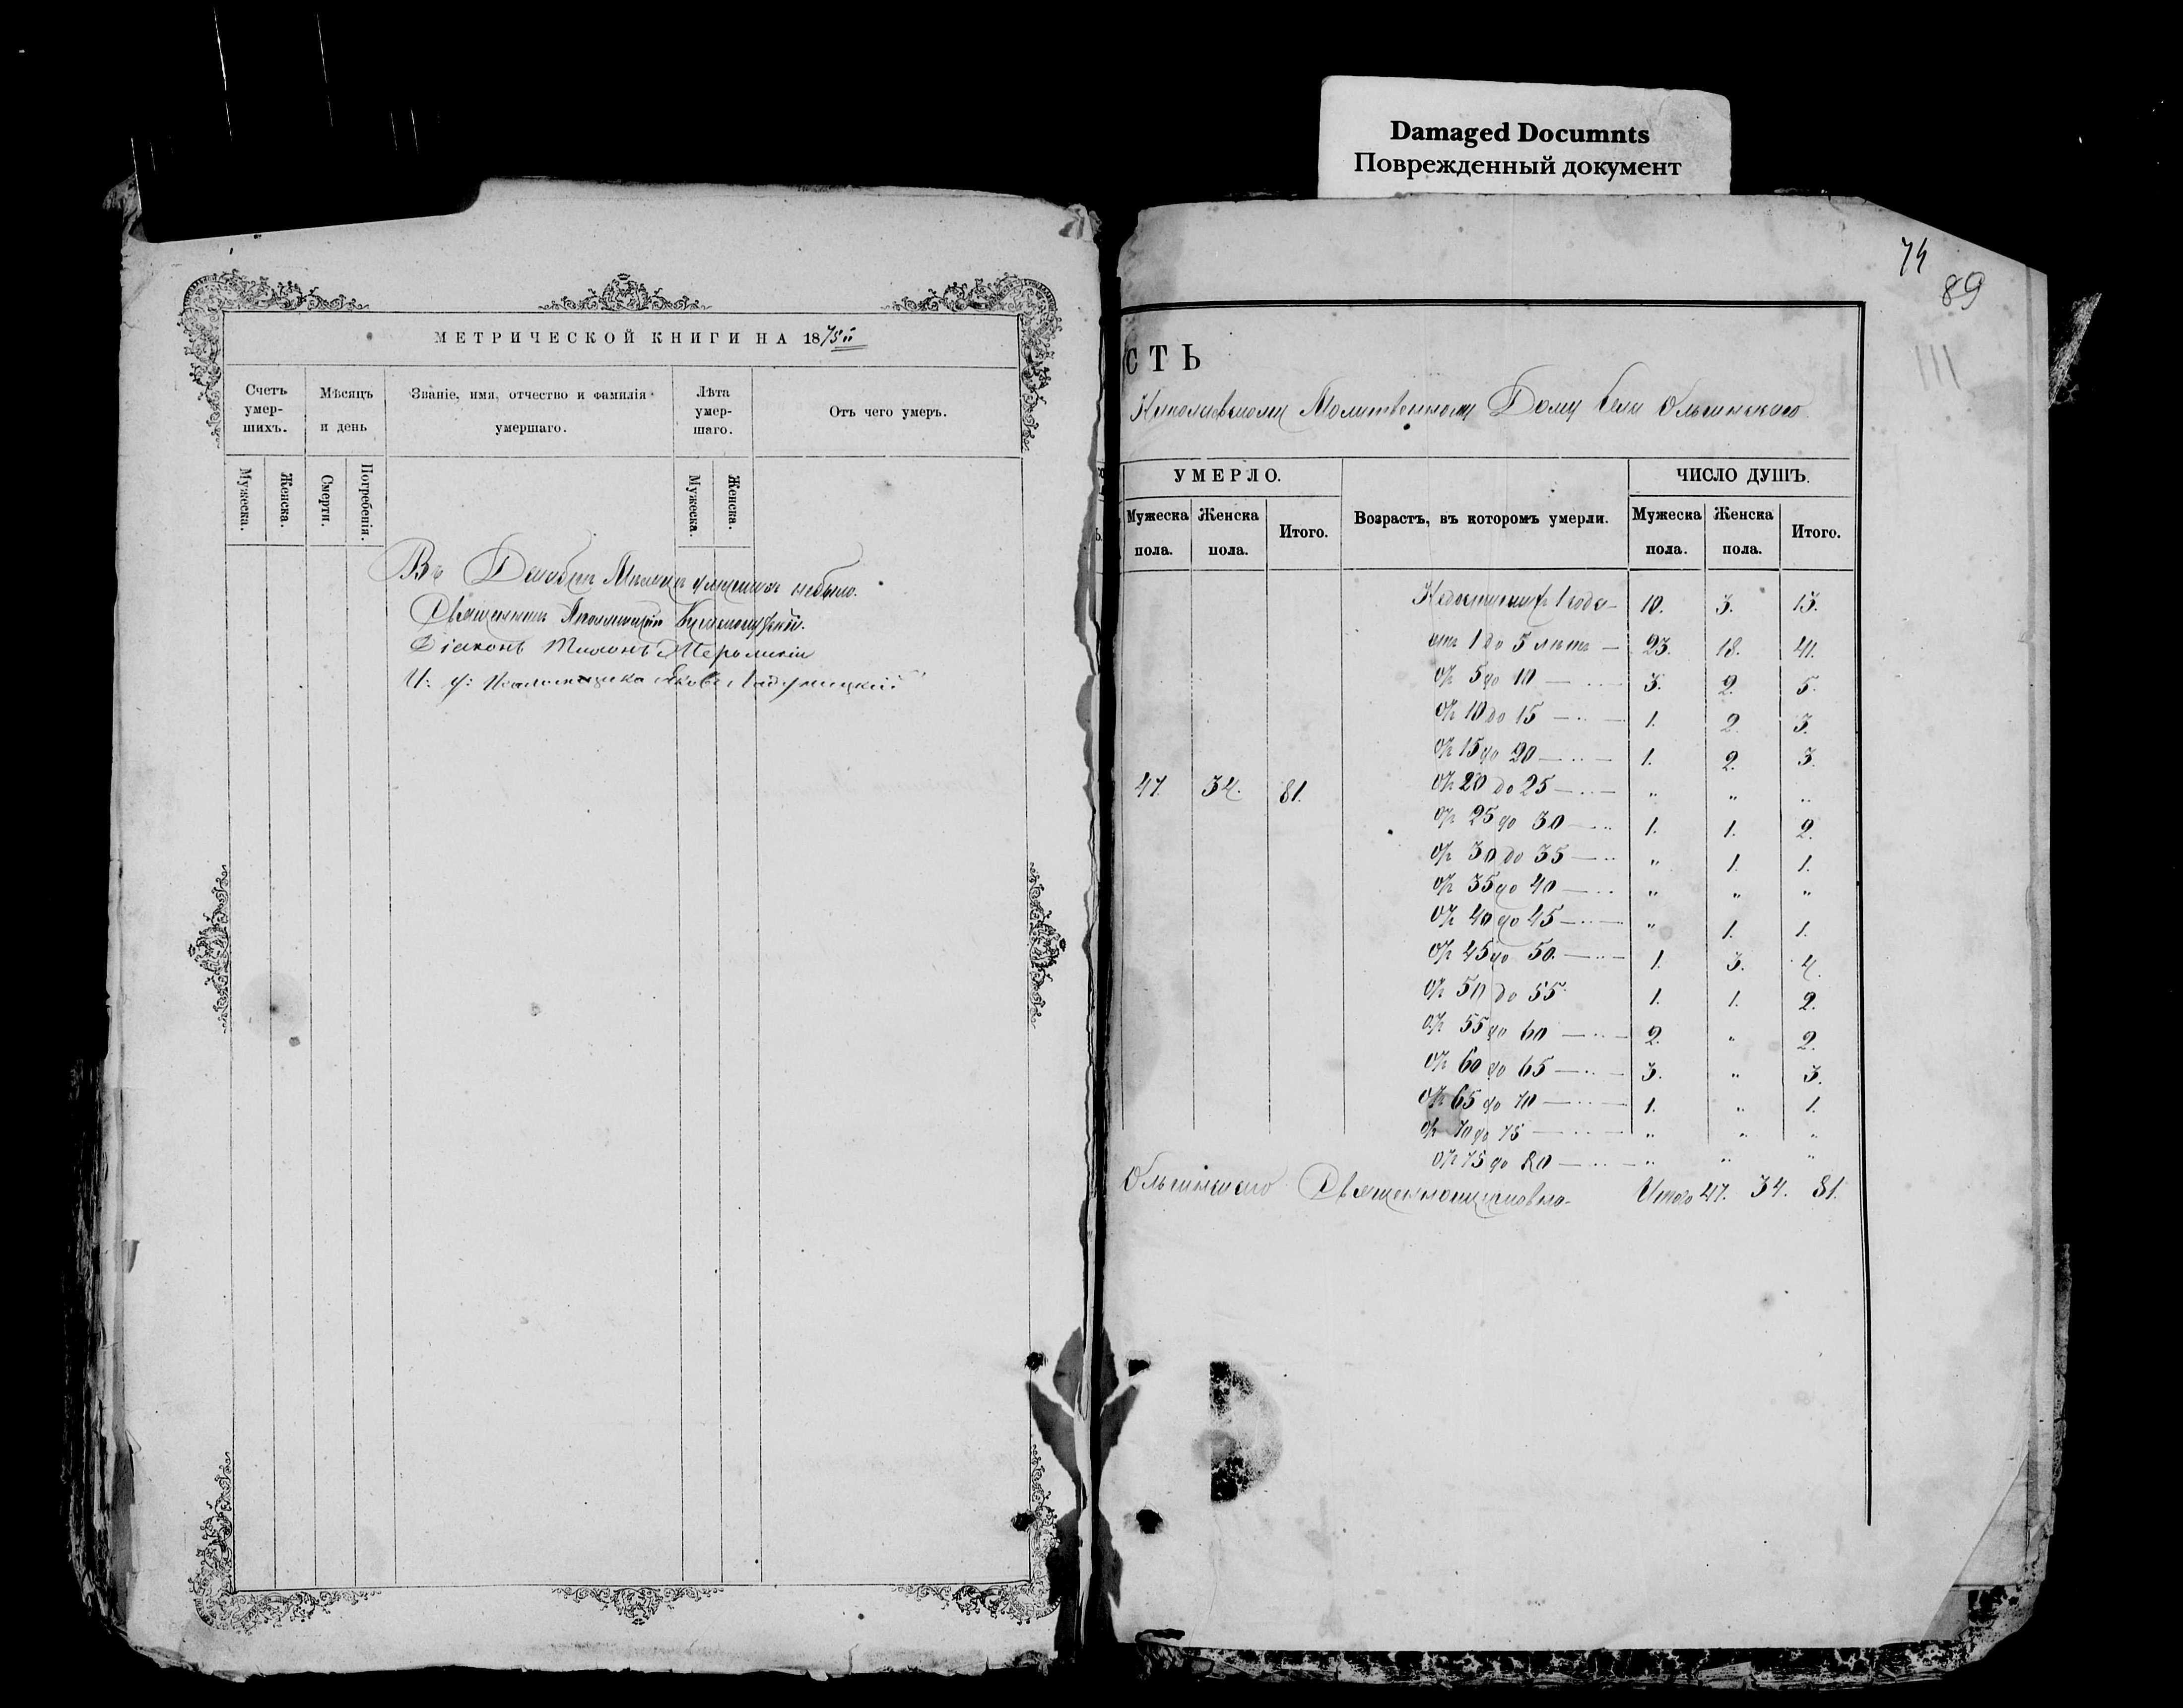 Damaged Documnts
Поврежденный документ
74
89
МЕТРИЧЕСКОЙ КНИГИ НА 1875й
Счетъ умер-шихъ.
Мѣсяцъ и день
Званіе, имя, отчество и фамилія умершаго.
Лѣта умер-шаго.
Отъ чего умеръ.
Мужеска.
Женска.
Смерти.
Погребенія.
Мужеска.
Женска.
Въ Декабрѣ Мѣсяцѣ умершихъ небыло.
Священникъ
Діаконъ
И: д: Псаломщика Яковъ
СТЬ
Николаевскому Молитвенному Дому села Ольшанскаго
УМЕРЛО.
Мужеска пола.
Женска пола.
Итого.
Возрастъ, въ которомъ умерли.
ЧИСЛО ДУШЪ.
Мужеска пола.
Женска пола.
Итого.
47. 34. 81.
1 года 10. 3. 13.
отъ 1 до 5 лѣтъ 23. 18. 41.
отъ 5 до 10 3. 2. 5.
отъ 10 до 15 1. 2. 3.
отъ 15 до 20 1. 2. 3.
отъ 20 до 25 " " "
отъ 25 до 30 1. 1. 2.
отъ 30 до 35 " 1. 1.
отъ 35 до 40 " " "
отъ 40 до 45 " 1. 1.
отъ 45 до 50. 1. 3. 4.
отъ 50 до 55 1. 1. 2.
отъ 55 до 60 2. " 2.
отъ 60 до 65 3. " 3.
отъ 65 до 70 1. " 1.
отъ 70 до 75 " " "
отъ 75 до 80 " " "
Итого 47. 34. 81.